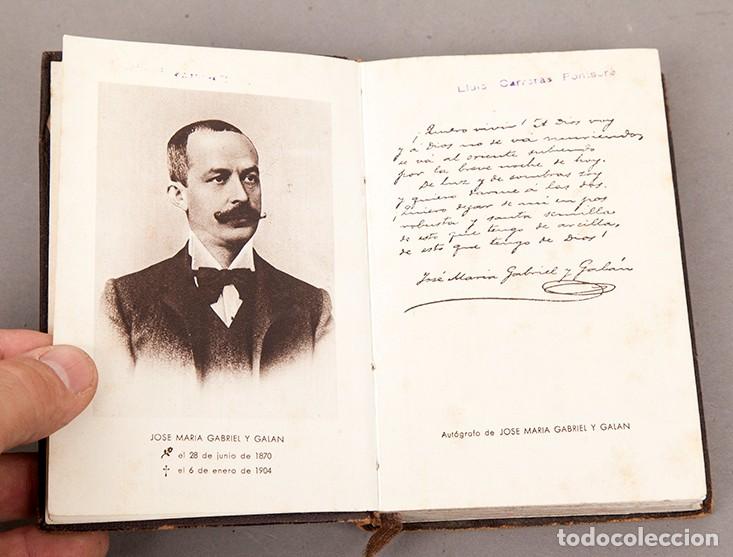 JOSE MARIA GABRIEL Y GALAN
el 28 de junio de 1870
† el 6 de enero de 1904
Lluis Carreras Fontseré
¡Quiero vivir! A Dios voy
y á Dios no se vá muriendo,
se vá al oriente subiendo
por la breve noche de hoy.
De luz y de sombras soy
y quiero darme á las dos.
¡Quiero dejar de mi en pos
robusta y santa semilla
de esto que tengo de arcilla,
de esto que tengo de Dios!
José Maria Gabriel y Galán
Autógrafo de JOSE MARIA GABRIEL Y GALAN
todocoleccion